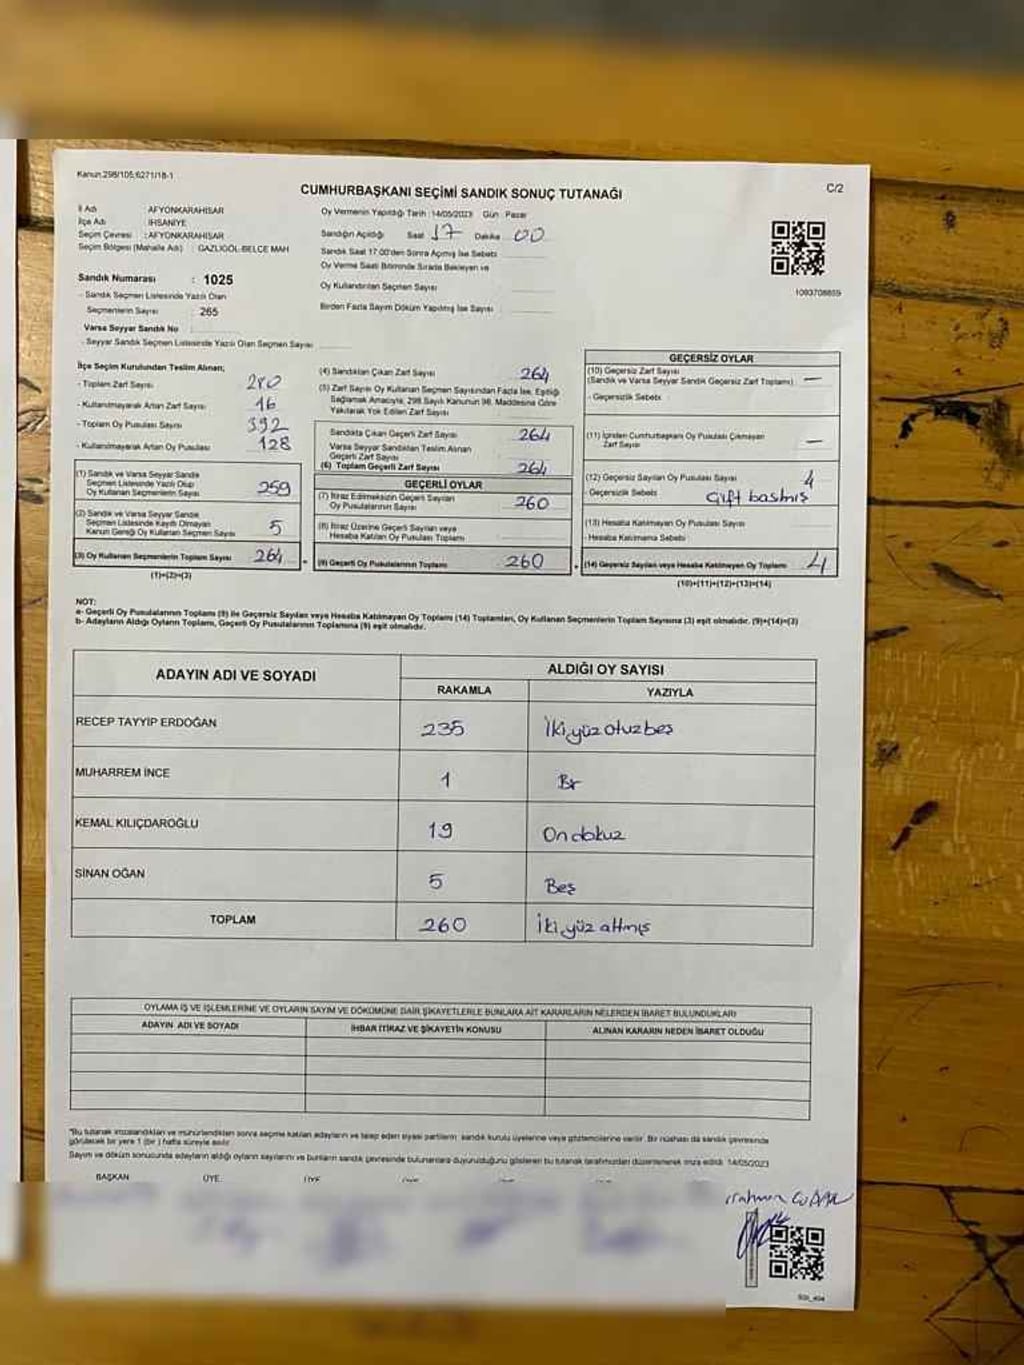 Kanun:298/105;6271/18-1
CUMHURBAŞKANI SEÇİMİ SANDIK SONUÇ TUTANAĞI
C/2
İl Adı : AFYONKARAHİSAR
İlçe Adı : İHSANİYE
Seçim Çevresi : AFYONKARAHİSAR
Seçim Bölgesi (Mahalle Adı) : GAZLIGÖL-BELCE MAH
Sandık Numarası : 1025
- Sandık Seçmen Listesinde Yazılı Olan
Seçmenlerin Sayısı : 265
Varsa Seyyar Sandık No
- Seyyar Sandık Seçmen Listesinde Yazılı Olan Seçmen Sayısı
Oy Vermenin Yapıldığı Tarih :14/05/2023 Gün : Pazar
Sandığın Açıldığı Saat 17 Dakika 00
Sandık Saat 17:00'den Sonra Açılmış İse Sebebi
Oy Verme Saati Bitiminde Sırada Bekleyen ve
Oy Kullandırılan Seçmen Sayısı
Birden Fazla Sayım Döküm Yapılmış İse Sayısı
1093708859
İlçe Seçim Kurulundan Teslim Alınan;
- Toplam Zarf Sayısı 280
- Kullanılmayarak Artan Zarf Sayısı 16
- Toplam Oy Pusulası Sayısı 392
- Kullanılmayarak Artan Oy Pusulası 128
(1) Sandık ve Varsa Seyyar Sandık
Seçmen Listesinde Yazılı Olup
Oy Kullanan Seçmenlerin Sayısı 259
(2) Sandık ve Varsa Seyyar Sandık
Seçmen Listesinde Kayıtlı Olmayan
Kanun Gereği Oy Kullanan Seçmen Sayısı 5
(3) Oy Kullanan Seçmenlerin Toplam Sayısı 264
(1)+(2)=(3)
(4) Sandıktan Çıkan Zarf Sayısı 264
(5) Zarf Sayısı Oy Kullanan Seçmen Sayısından Fazla İse, Eşitliği
Sağlamak Amacıyla, 298 Sayılı Kanunun 98. Maddesine Göre
Yakılarak Yok Edilen Zarf Sayısı
Sandıkta Çıkan Geçerli Zarf Sayısı 264
Varsa Seyyar Sandıktan Teslim Alınan
Geçerli Zarf Sayısı
(6) Toplam Geçerli Zarf Sayısı 264
GEÇERLİ OYLAR
(7) İtiraz Edilmeksizin Geçerli Sayılan
Oy Pusulalarının Sayısı 260
(8) İtiraz Üzerine Geçerli Sayılan veya
Hesaba Katılan Oy Pusulası Toplamı
(9) Geçerli Oy Pusulalarının Toplamı 260
GEÇERSİZ OYLAR
(10) Geçersiz Zarf Sayısı
(Sandık ve Varsa Seyyar Sandık Geçersiz Zarf Toplamı) —
- Geçersizlik Sebebi
(11) İçinden Cumhurbaşkanı Oy Pusulası Çıkmayan
Zarf Sayısı —
(12) Geçersiz Sayılan Oy Pusulası Sayısı 4
- Geçersizlik Sebebi Çift basmış
(13) Hesaba Katılmayan Oy Pusulası Sayısı
- Hesaba Katılmama Sebebi
(14) Geçersiz Sayılan veya Hesaba Katılmayan Oy Toplamı 4
(10)+(11)+(12)+(13)=(14)
NOT:
a- Geçerli Oy Pusulalarının Toplamı (9) ile Geçersiz Sayılan veya Hesaba Katılmayan Oy Toplamı (14) Toplamları, Oy Kullanan Seçmenlerin Toplam Sayısına (3) eşit olmalıdır. (9)+(14)=(3)
b- Adayların Aldığı Oyların Toplamı, Geçerli Oy Pusulalarının Toplamına (9) eşit olmalıdır.
ADAYIN ADI VE SOYADI
ALDIĞI OY SAYISI
RAKAMLA YAZIYLA
RECEP TAYYİP ERDOĞAN 235 İki yüz otuz beş
MUHARREM İNCE 1 Bir
KEMAL KILIÇDAROĞLU 19 On dokuz
SİNAN OĞAN 5 Beş
TOPLAM 260 İki yüz altmış
OYLAMA İŞ VE İŞLEMLERİNE VE OYLARIN SAYIM VE DÖKÜMÜNE DAİR ŞİKAYETLERLE BUNLARA AİT KARARLARIN NELERDEN İBARET BULUNDUKLARI
ADAYIN ADI VE SOYADI
İHBAR İTİRAZ VE ŞİKAYETİN KONUSU
ALINAN KARARIN NEDEN İBARET OLDUĞU
"Bu tutanak imzalandıktan ve mühürlendikten sonra seçime katılan adayların ve talep eden siyasi partilerin sandık kurulu üyelerine veya gözlemcilerine verilir. Bir nüshası da sandık çevresinde
görülecek bir yere 1 (bir) hafta süreyle asılır.
Sayım ve döküm sonucunda adayların aldığı oyların sayılarını ve bunların sandık çevresinde bulunanlara duyurulduğunu gösteren bu tutanak tarafımızdan düzenlenerek imza edildi. 14/05/2023
BAŞKAN ÜYE ÜYE